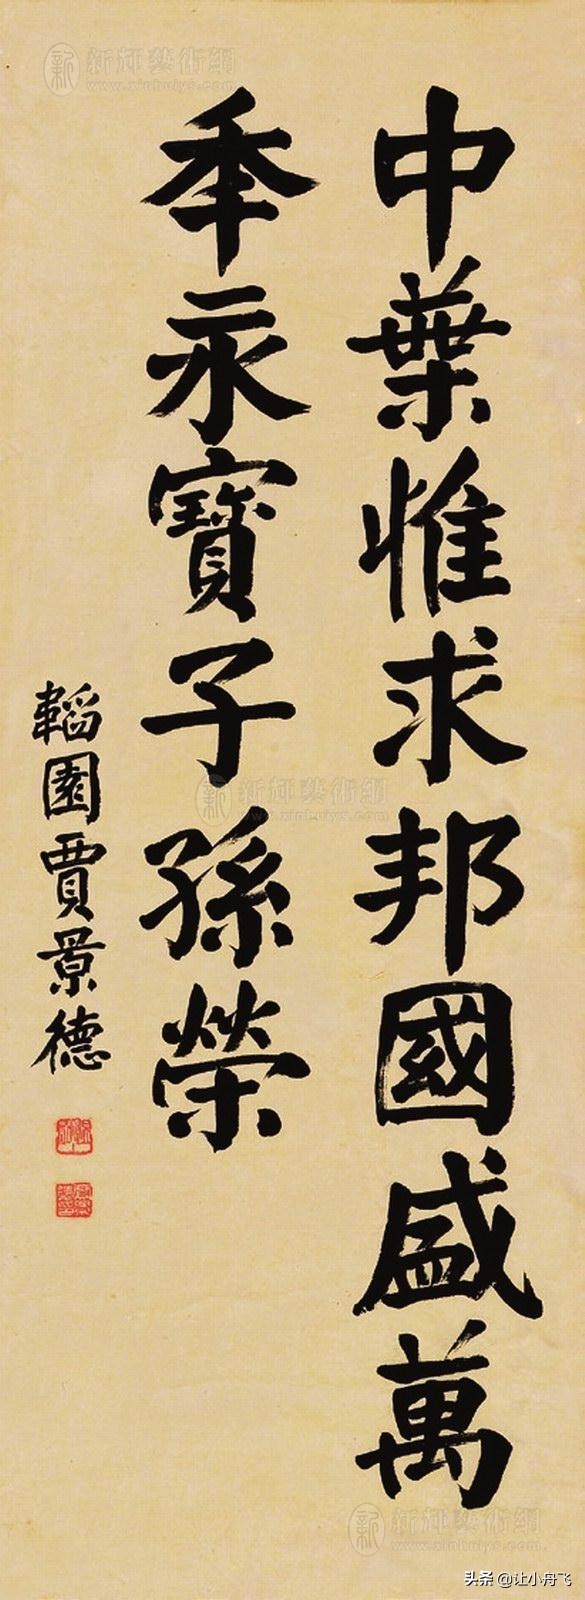 中葉惟求邦國盛萬
年永寶子孫榮
韜園賈景德
新輝藝術網
www.xinhuiys.com
新輝藝術網
www.xinhuiys.com
新輝藝術網
www.xinhuiys.com
头条 @让小舟飞